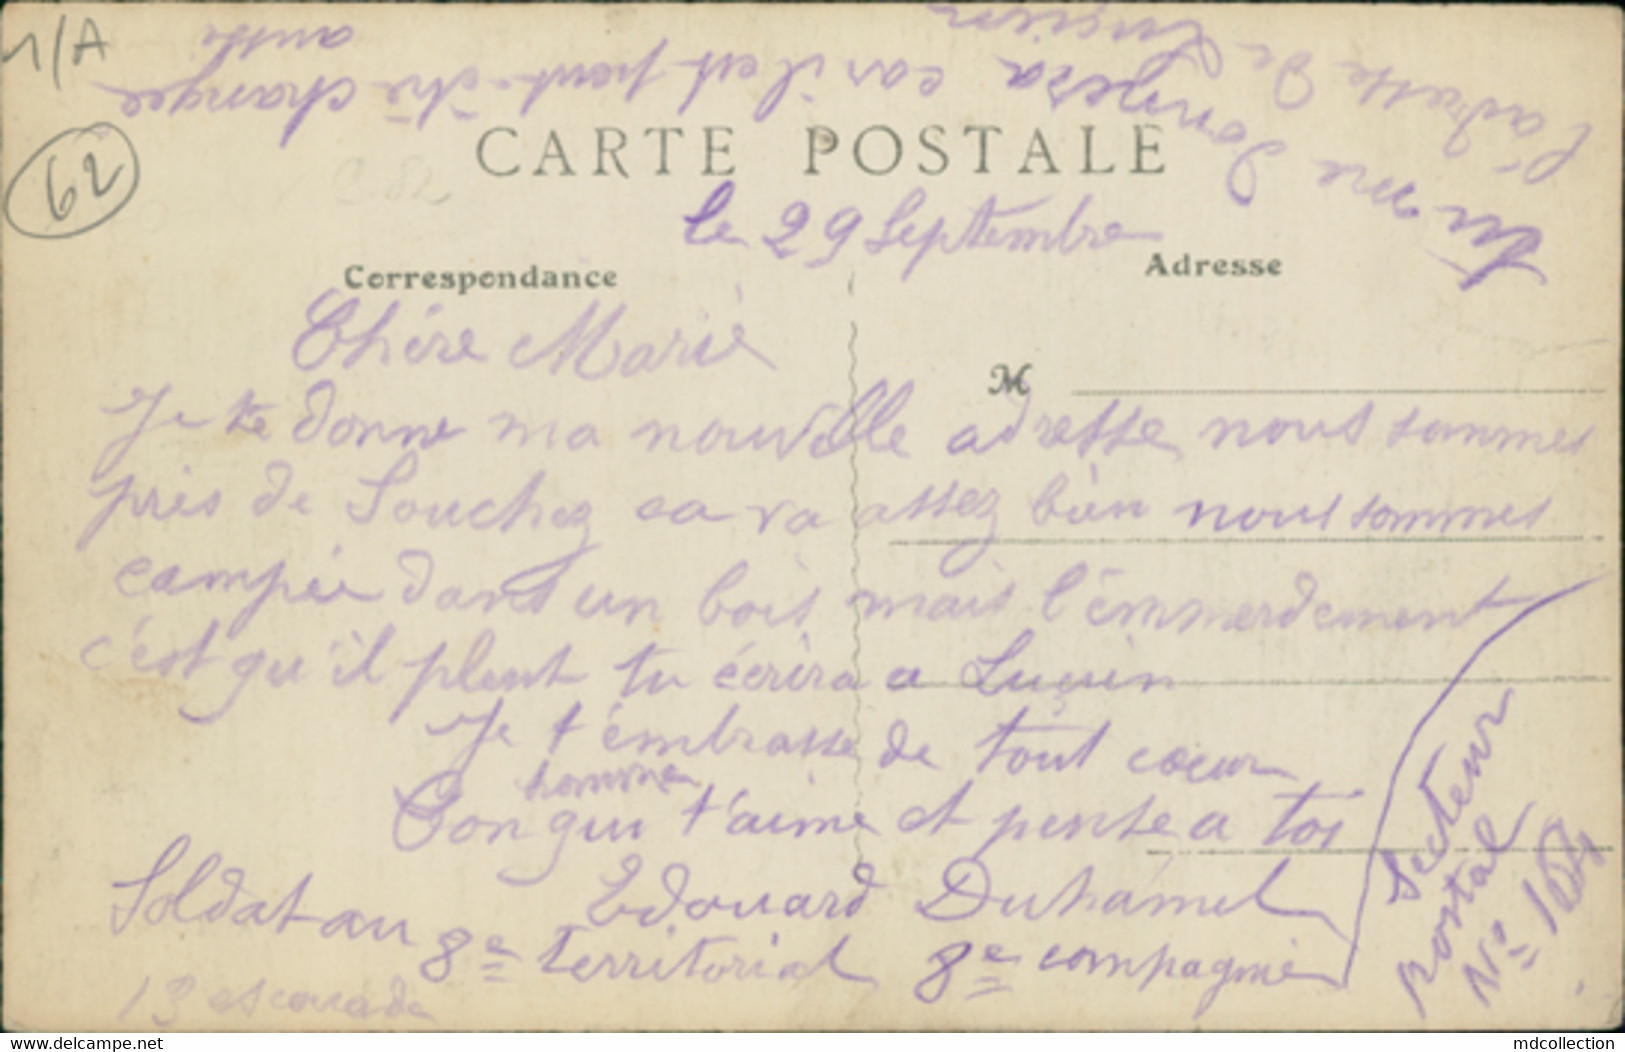 1/A
62
CARTE POSTALE
le 29 Septembre
Correspondance
Adresse
Chère Marie
M
Je te donne ma nouvelle adresse nous sommes
près de Souchez ca va assez bien nous sommes
campée dans un bois mais l'émmerdement
c'est qu'il pleut tu écrira a Luçien
Je t'émbrasse de tout cœur
Ton homme qui t'aime et pense a toi
Edouard Duhamel
Soldat au 8e territorial 8e compagnie
13 escouade
Secteur
postal
No 164
Tu me donnera
l'adresse de Luçien
car il est peut-être changée
aussi
www.delcampe.net
mdcollection